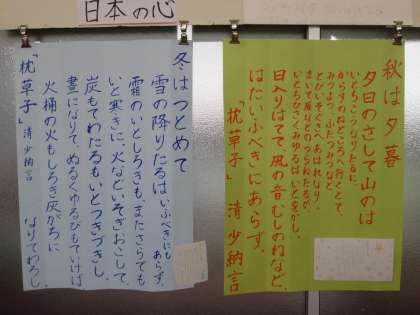 日本の心
秋は夕暮
夕日のさして山のは
いとちこうなりたるに
からすのねどころへ行くとて、
みつよつ、ふたつみつなど
とびいそぐさへあはれなり
まいて雁などのつらねたるが、
いとちひさくみゆるはいとをかし。
日入りはてて、風の音むしのねなど、
はたいふべきにあらず。
「枕草子」 清少納言
冬はつとめて
雪の降りたるはいふべきにもあらず、
霜のいとしろきも、またさらでも
いと寒きに、火などいそぎおこして、
炭もてわたるもいとつきづきし。
晝になりて、ぬるくゆるびもていけば
火桶の火もしろき灰がちに
なりてわろし。
「枕草子」 清少納言